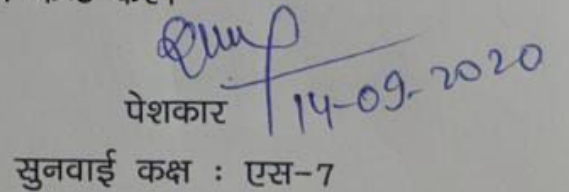 पेशकार
14-09-2020
सुनवाई कक्ष : एस-7